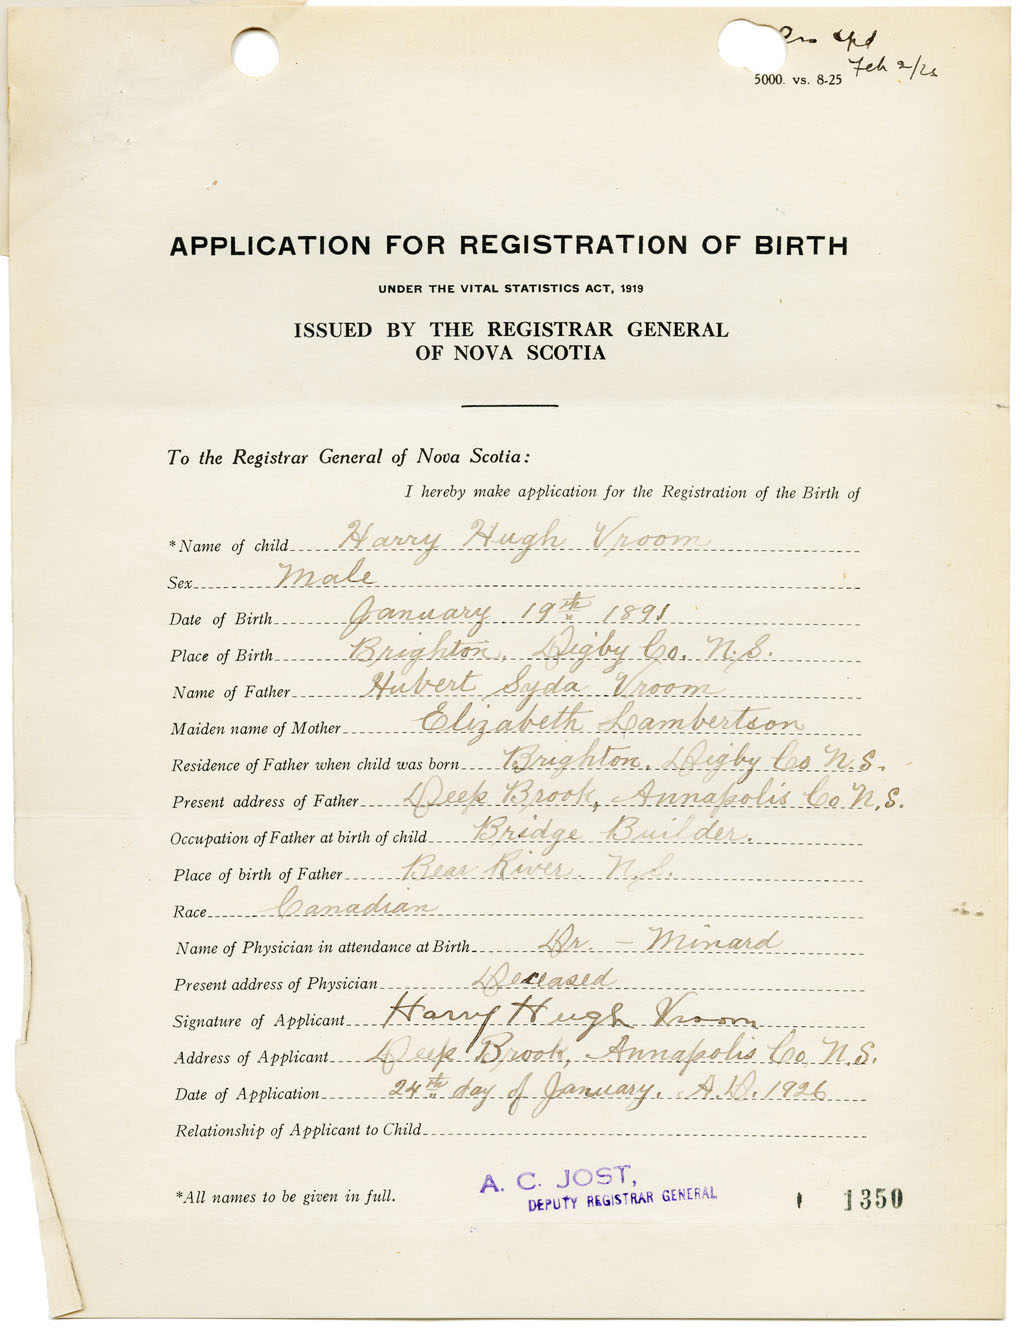 Feb 2/26
5000. vs. 8-25
APPLICATION FOR REGISTRATION OF BIRTH
UNDER THE VITAL STATISTICS ACT, 1919
ISSUED BY THE REGISTRAR GENERAL
OF NOVA SCOTIA
To the Registrar General of Nova Scotia:
I hereby make application for the Registration of the Birth of
*Name of child Harry Hugh Vroom
Sex Male
Date of Birth January 19th 1891
Place of Birth Brighton, Digby Co. N.S.
Name of Father Hubert Syda Vroom
Maiden name of Mother Elizabeth Lambertson
Residence of Father when child was born Brighton. Digby Co N.S.
Present address of Father Deep Brook, Annapolis Co N.S.
Occupation of Father at birth of child Bridge Builder.
Place of birth of Father Bear River. N.S.
Race Canadian
Name of Physician in attendance at Birth Dr. – Minard
Present address of Physician Deceased
Signature of Applicant Harry Hugh Vroom
Address of Applicant Deep Brook, Annapolis Co, N.S.
Date of Application 24th day of January. A.D. 1926
Relationship of Applicant to Child
A. C. JOST,
DEPUTY REGISTRAR GENERAL
*All names to be given in full.
1350